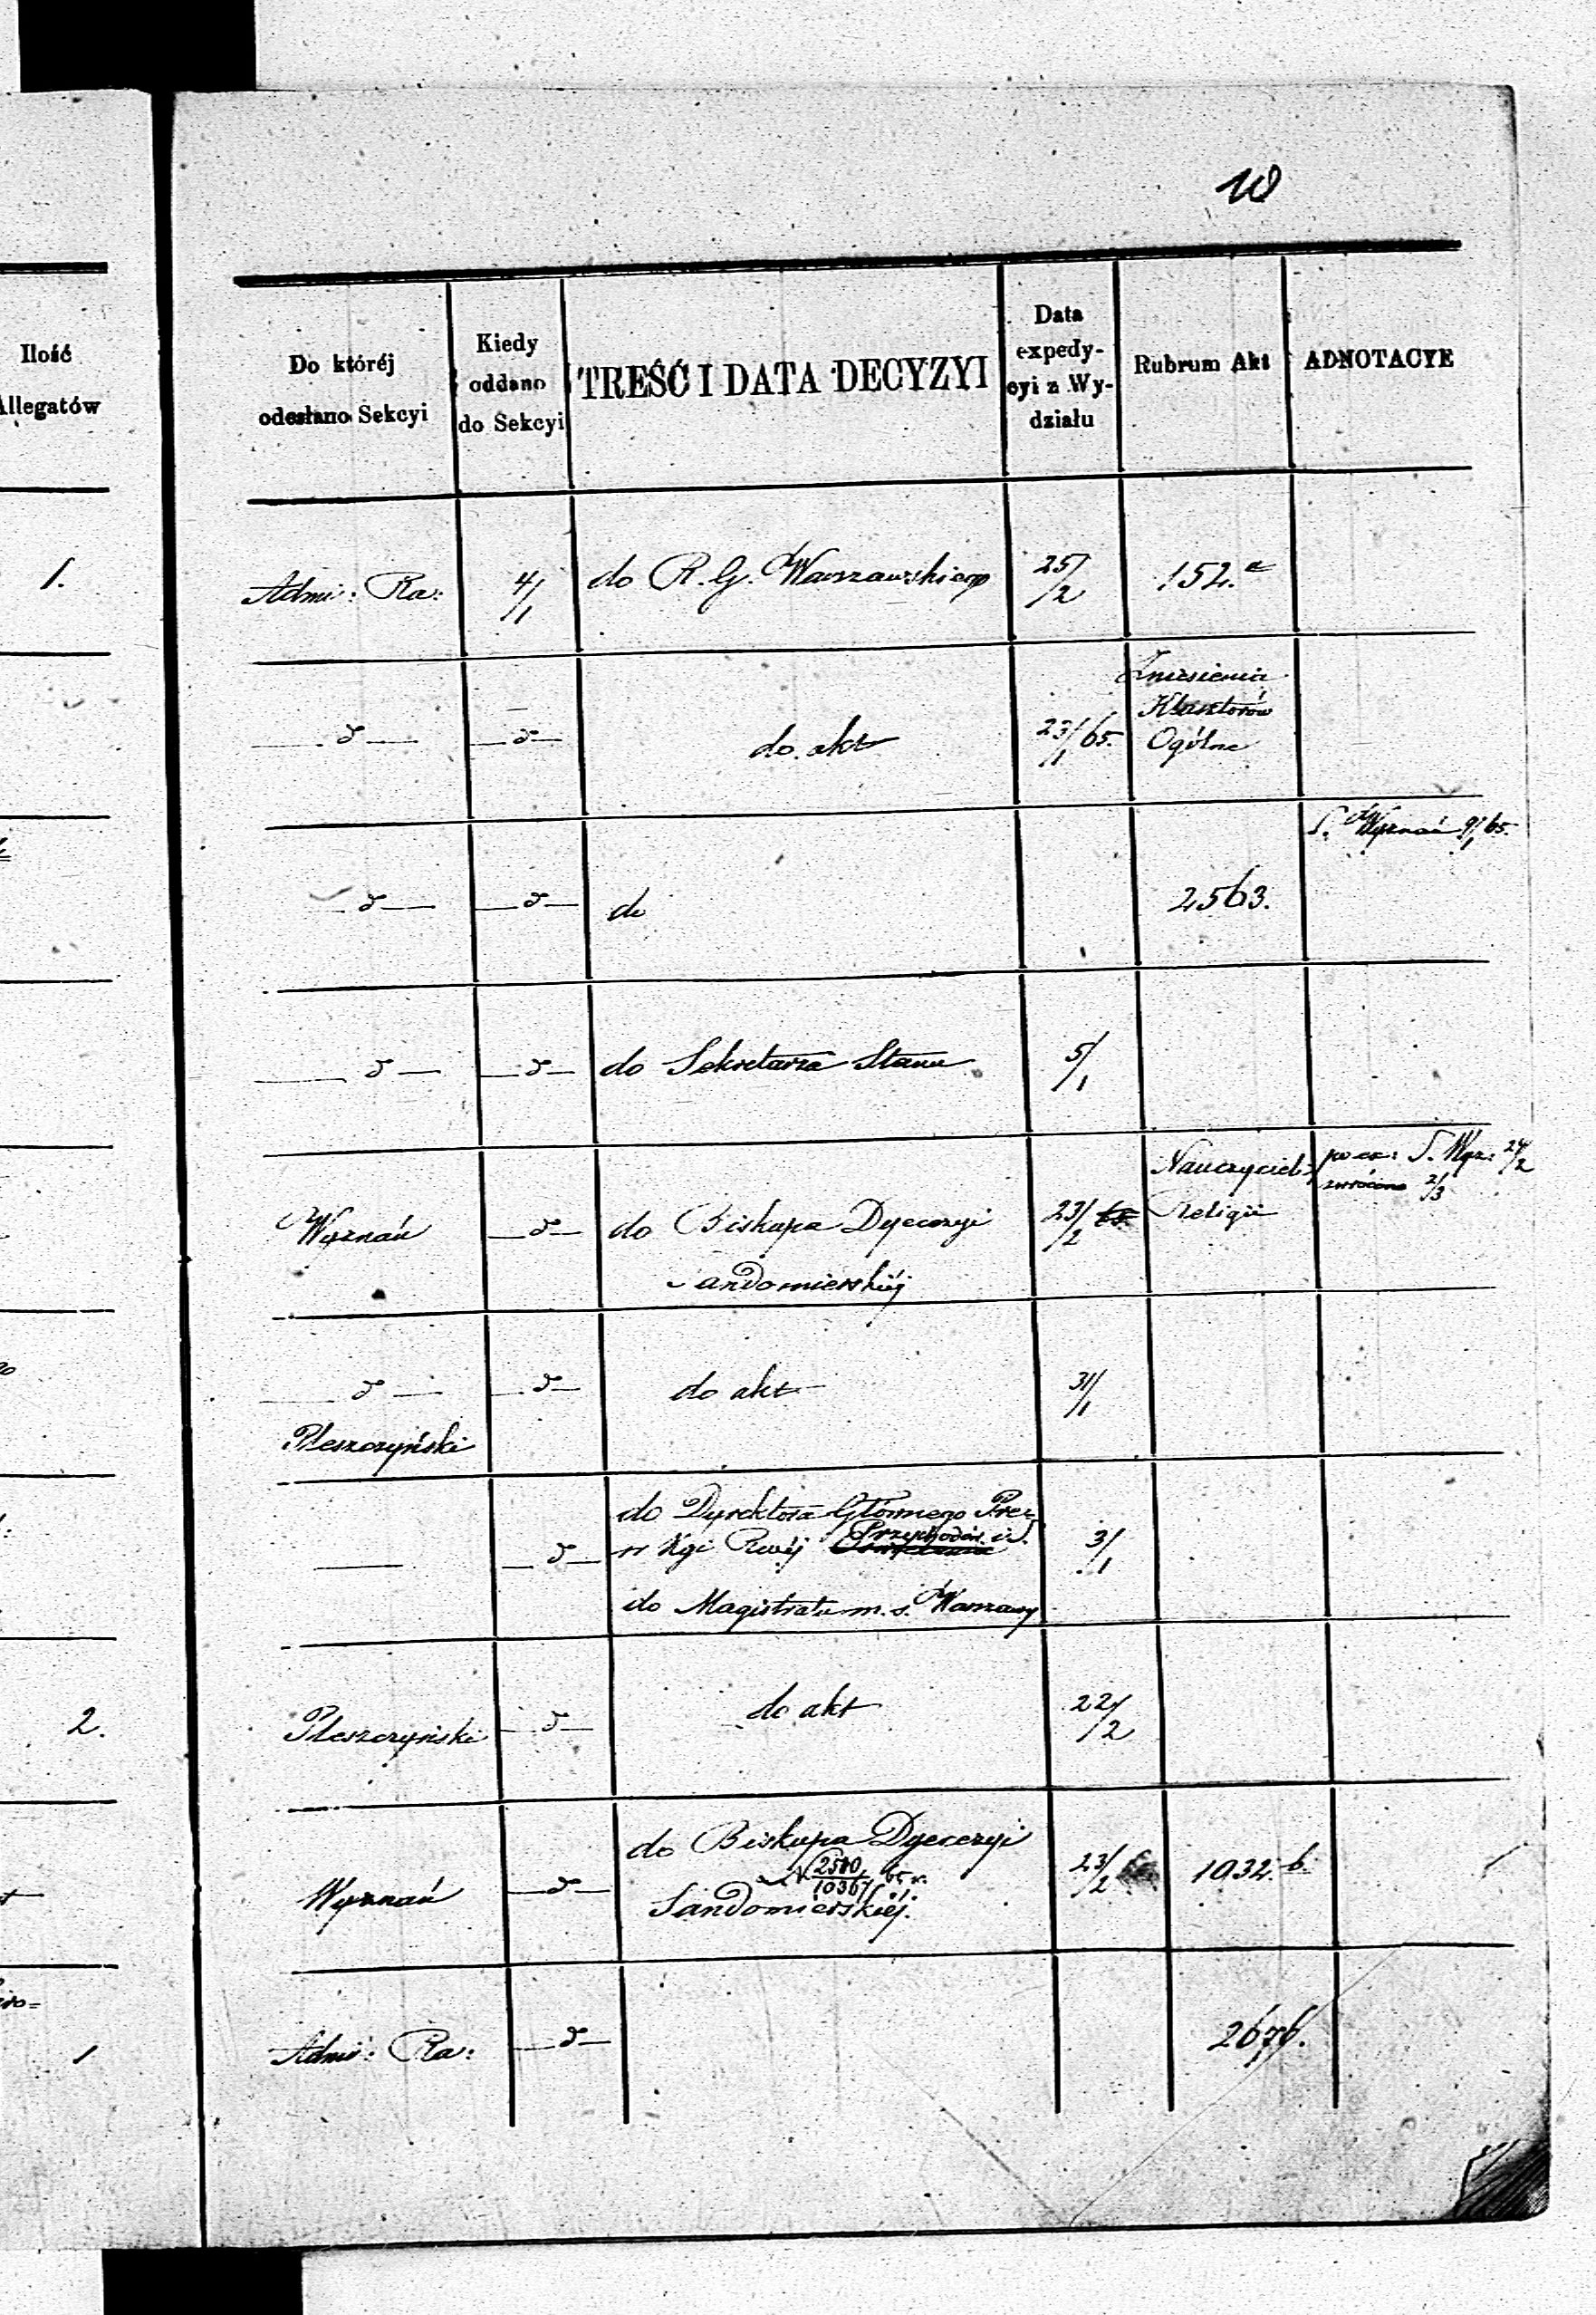 10
Ilość
Allegatów
Do któréj
odesłano Sekcyi
Kiedy
oddano
do Sekcyi
TREŚĆ I DATA DECYZYI
Data
expedy-
cyi z Wy-
działu
Rubrum Akt
ADNOTACYE
1.
Admi: Ra:
4/1
do R. G. Warszawskiego
25/2
152.a
— d —
— d —
do akt
23/1 65.
Zniesienia
Klasztorów
Ogólne
— d —
— d —
do
2563.
S. Wyznań 9/1 65.
— d —
— d —
do Sekretarza Stanu
5/1
Wyznań
— d —
do Biskupa Dyecezyi
Sandomierskiéj
23/2 65.
Nauczyciele
Religii
S. Wyz: 24/2
zwrócono 2/3
— d —
Pleszczyński
— d —
do akt
31/1
—
— d —
do Dyrektora Głównego Prez-
w Kgi Rwéj Przychodów i S.
do Magistratu m. s. Warszawy
3/1
2.
Pleszczyński
— d —
do akt
22/2
Wyznań
— d —
do Biskupa Dyecezyi
N 2580/10367 65 r.
Sandomierskiéj.
23/2
1032.b.
1
Admi: Ra:
— d —
2676.